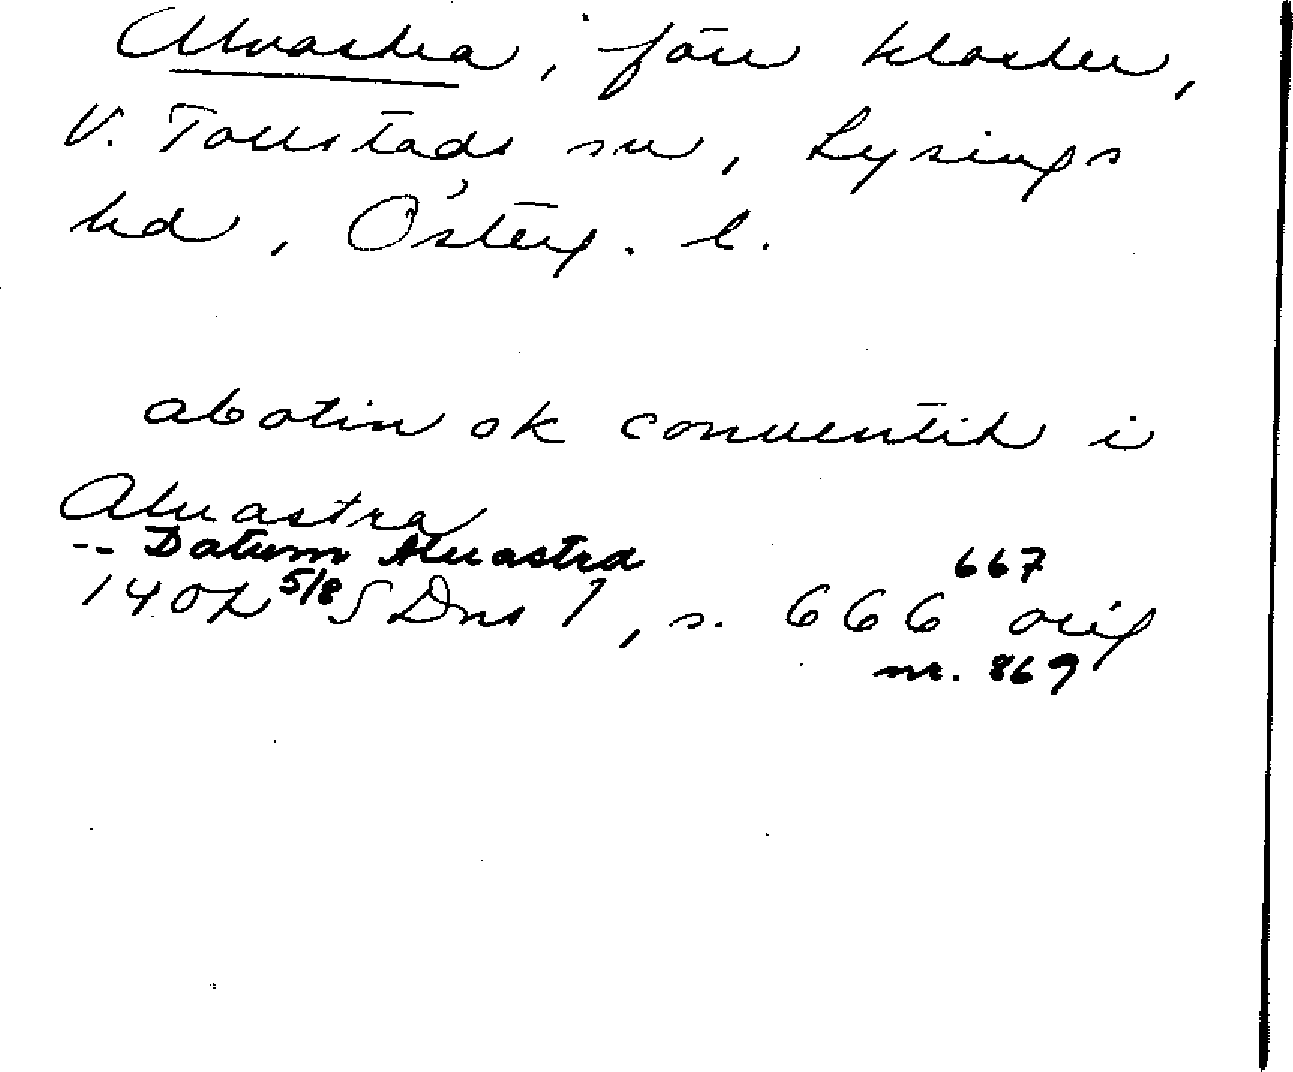 Alvastra, förr kloster,
V. Tollstads sn, Lysings
hd, Österg. l.
abotin ok conuentith i
Aluastra
-- Datum Aluastra
1402 5/8 SDns 1, s. 666 667 orig
nr. 869